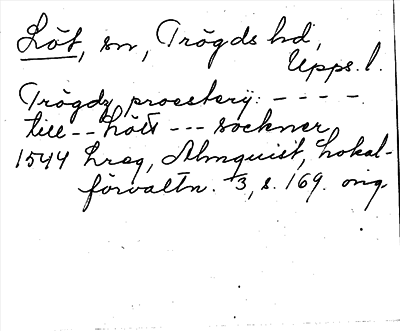 Löt, sn, Trögds hd,
Upps. l.
Trögdz proestery: - - - -
till - - Lött - - - sockner
1544 Lreg, Almquist, Lokal-
förvaltn. 3, s. 169. orig.